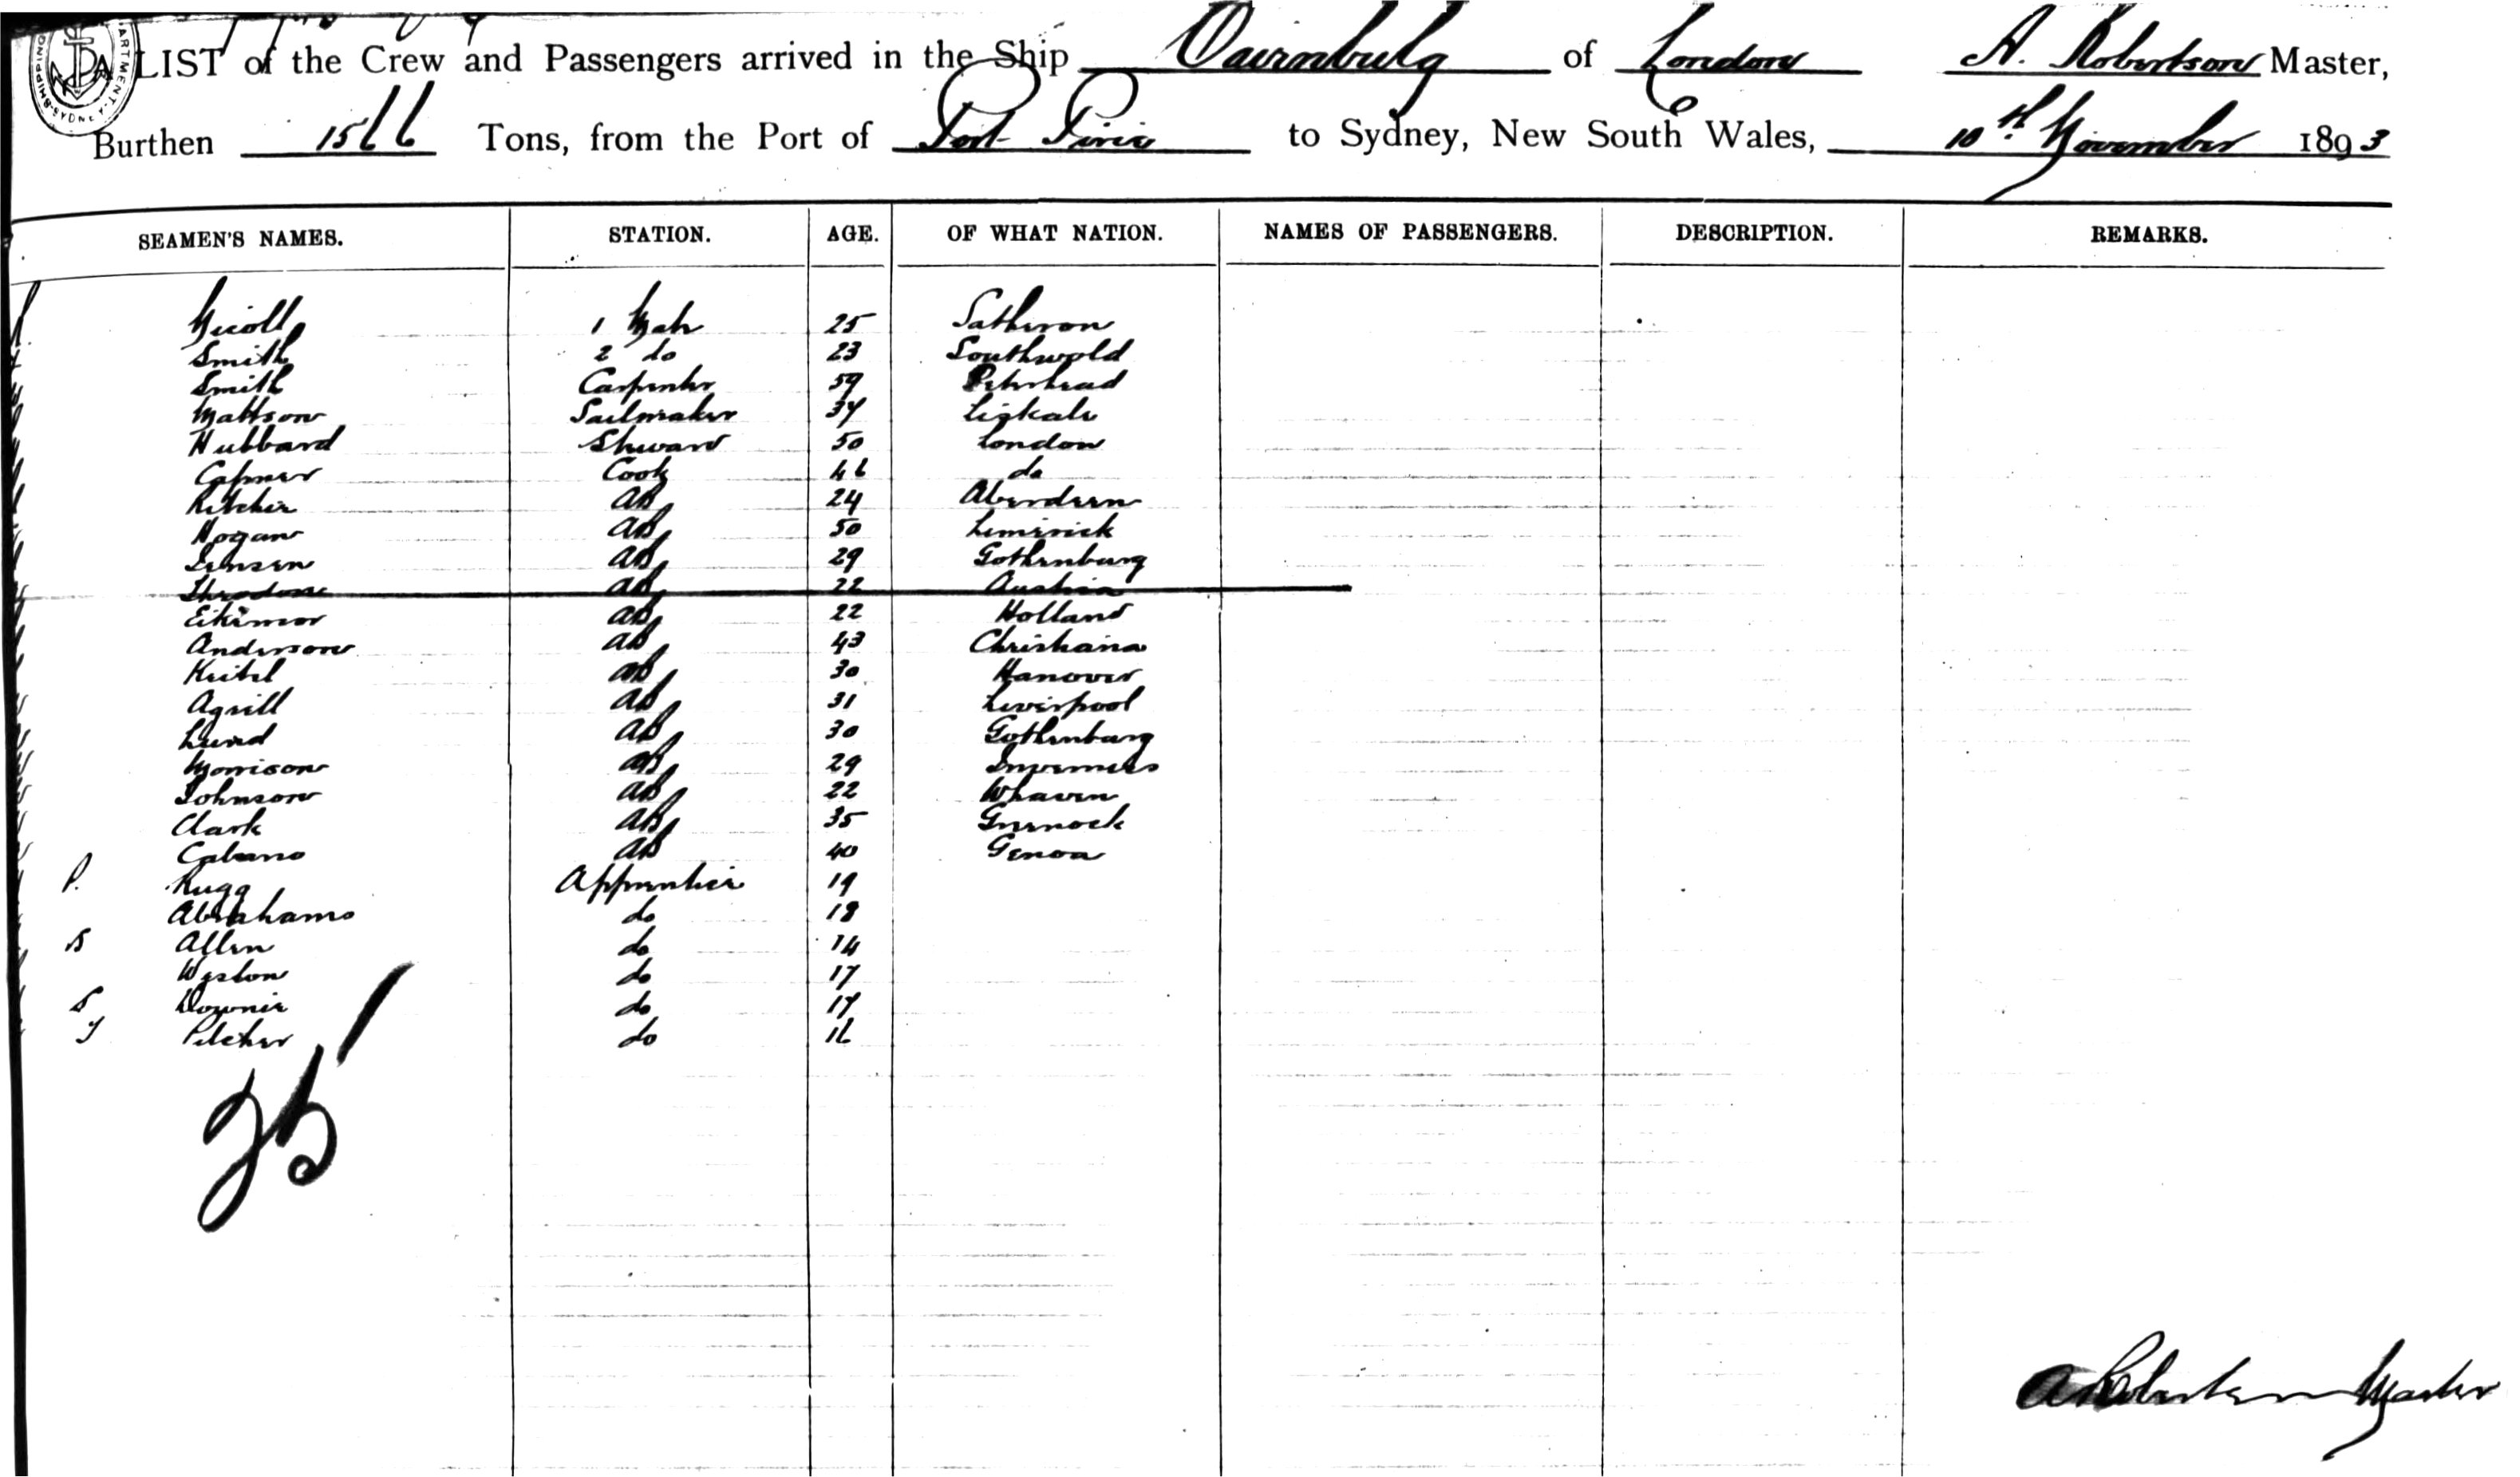 LIST of the Crew and Passengers arrived in the Ship Cairnbulg of London A. Robertson Master,
Burthen 1566 Tons, from the Port of Port Pirie to Sydney, New South Wales, 10th November 1893
SEAMEN'S NAMES. STATION. AGE. OF WHAT NATION. NAMES OF PASSENGERS. DESCRIPTION. REMARKS.
Nicoll 1 Mate 25
Smith 2 do 23 Southwold
Smith Carpenter 59 Peterhead
Mattson Sailmaker 34
Hubbard Steward 50 London
Cook 46 do
Ritchie AB 24 Aberdeen
Hogan AB 50 Limerick
Jensen AB 29 Gothenburg
AB 22 Austria
AB 22 Holland
Anderson AB 43 Christiana
Keibel AB 30 Hanover
Agnill AB 31 Liverpool
Lund AB 30 Gothenburg
Morrison AB 29 Inverness
Johnson AB 22 Whaven
Clark AB 35 Greenock
AB 40 Genoa
P. Rugg Apprentice 19
Abrahams do 18
B Allen do 14
Weston do 17
S Downie do 17
Y Pilcher do 16
25
A Robertson Master